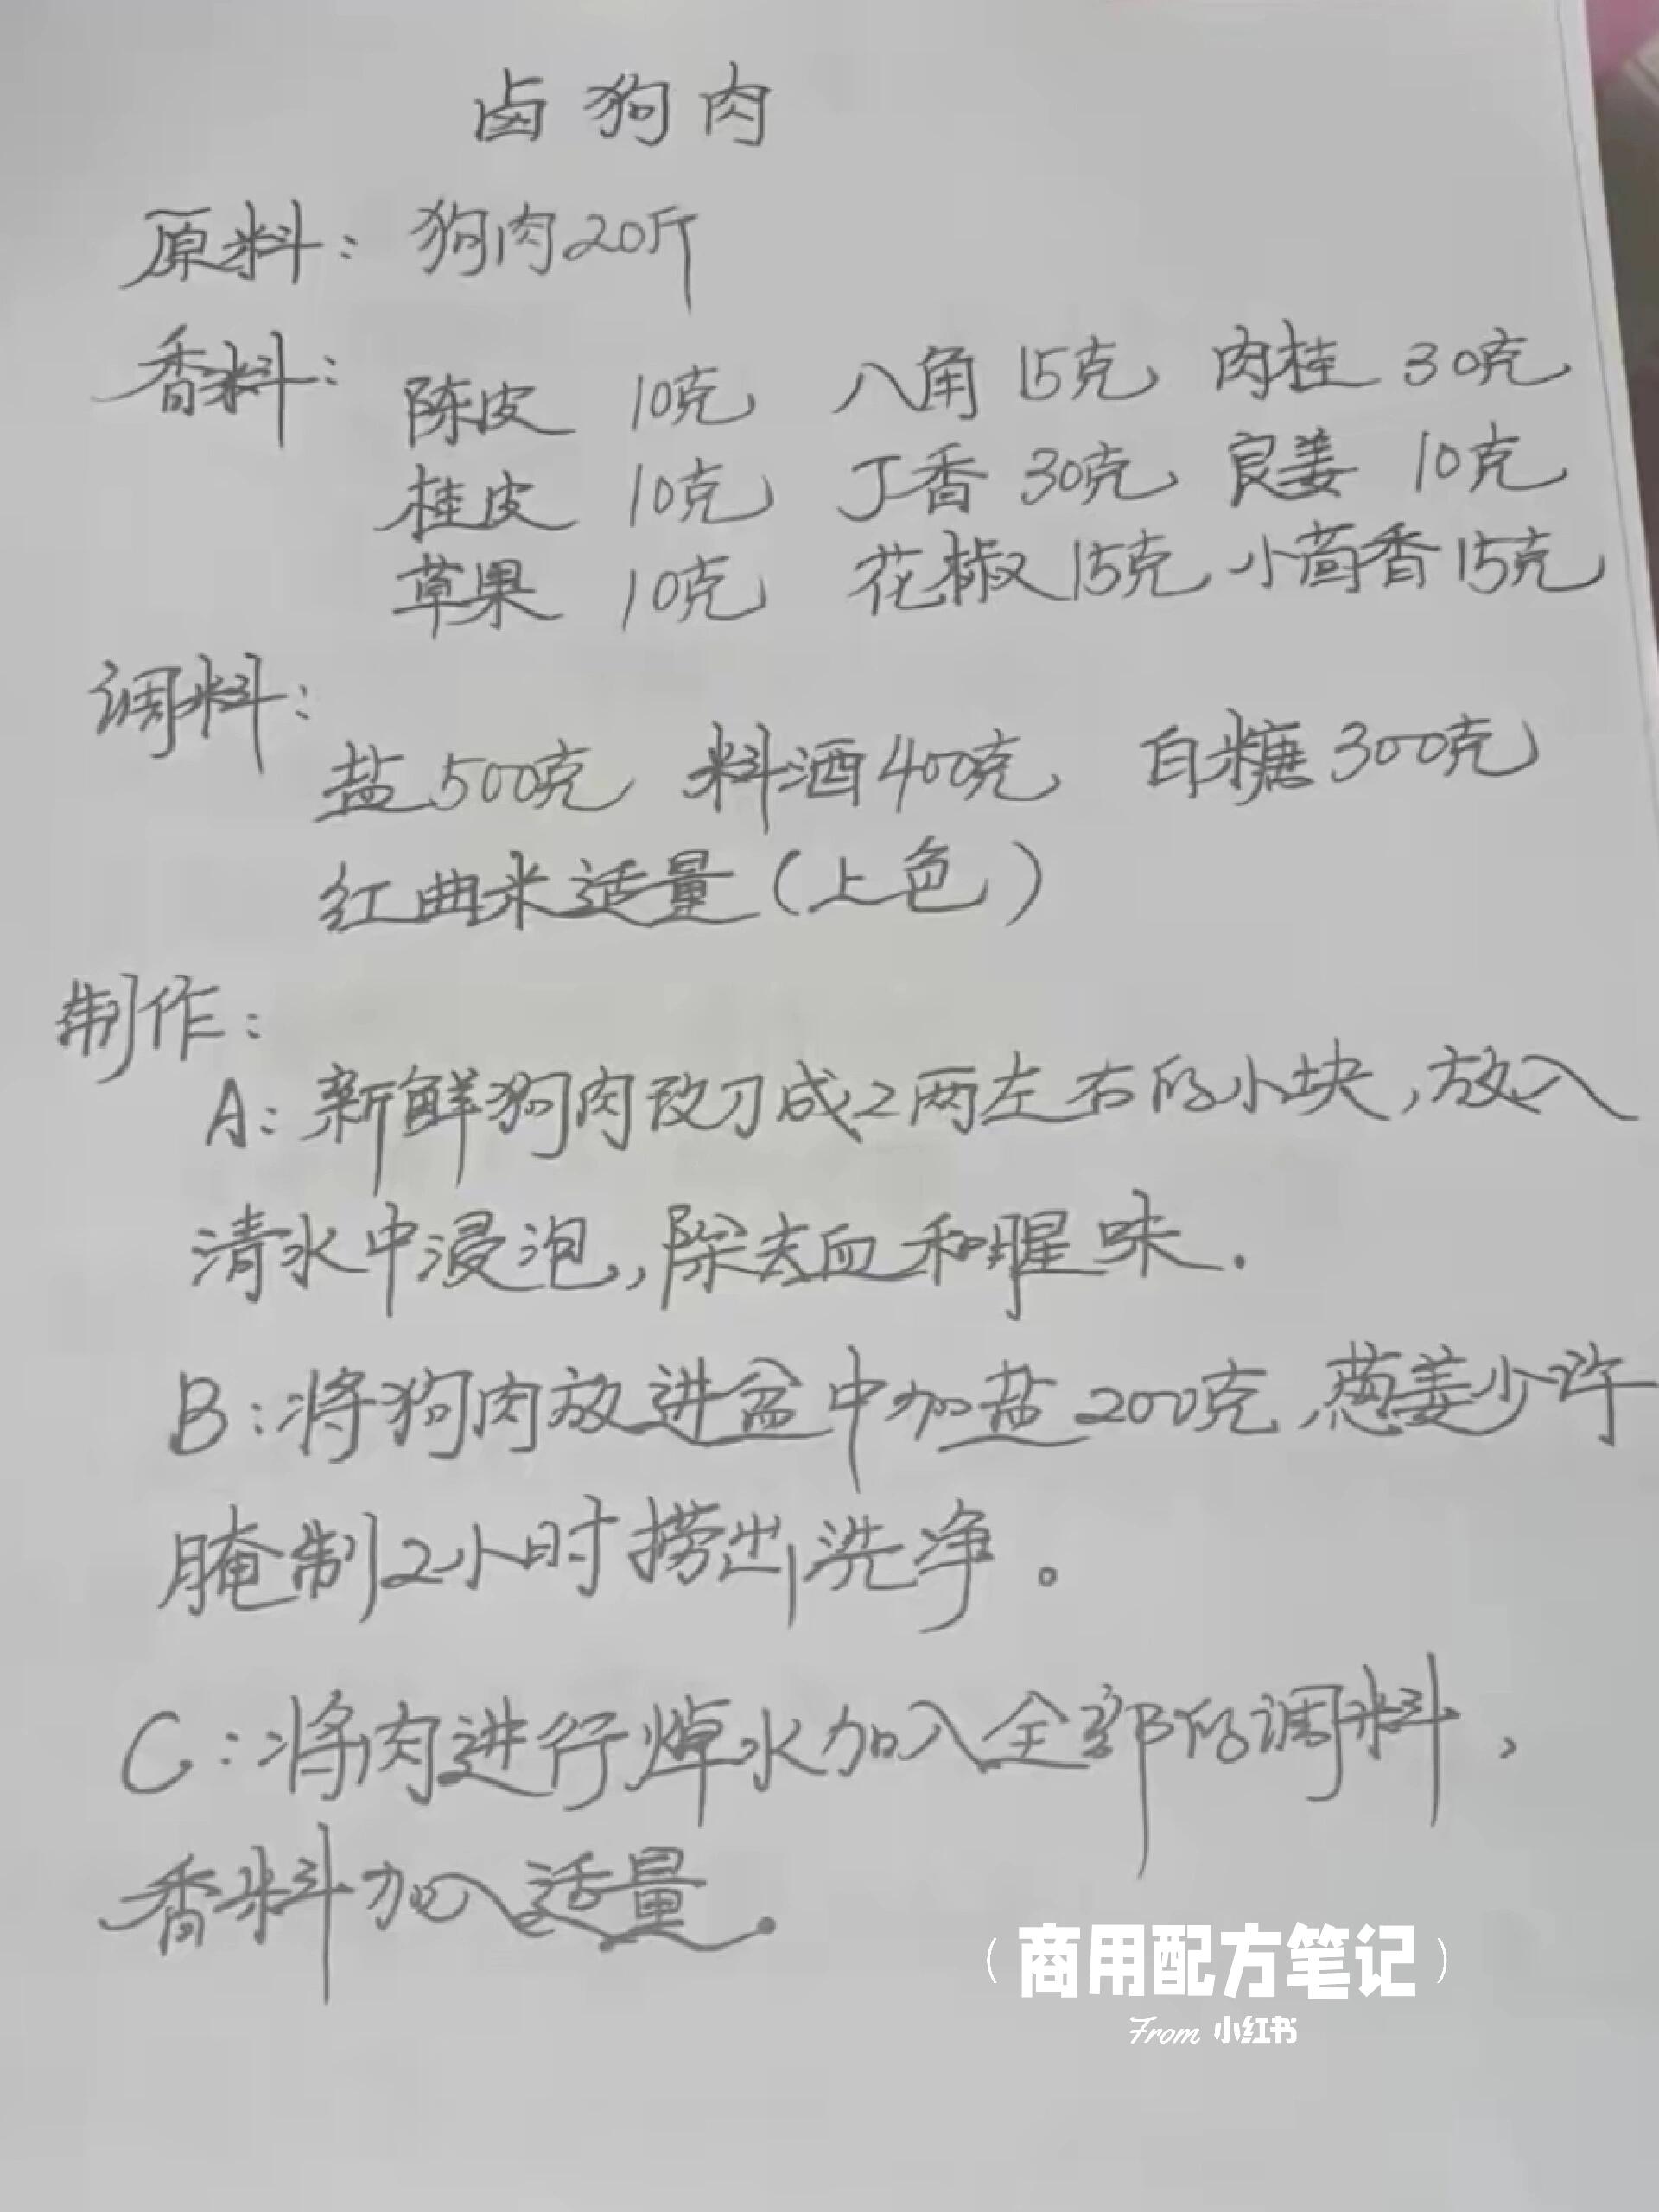 卤狗肉
原料：狗肉20斤
香料：陈皮 10克 八角 15克 肉桂 30克
桂皮 10克 丁香 30克 良姜 10克
草果 10克 花椒 15克 小茴香 15克
调料：
盐500克 料酒400克 白糖300克
红曲米适量（上色）
制作：
A：新鲜狗肉改刀成2两左右的小块，放入
清水中浸泡，除去血和腥味.
B：将狗肉放进盆中加盐200克，葱姜少许
腌制2小时捞出洗净。
C：将肉进行焯水加入全部的调料，
香料加入适量.
（商用配方笔记）
From 小红书